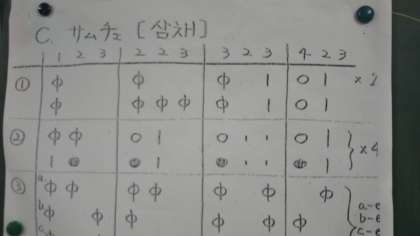 C. サムチェ [삼채]
1 2 3 2 2 3 3 2 3 4 2 3
① Φ Φ Φ | O | x2
Φ Φ Φ Φ Φ | O |
② Φ Φ O | O ı ı O |
| ● ● | ● ı ı ● | x4
③ a Φ Φ Φ Φ Φ Φ Φ a-e
b Φ Φ Φ Φ Φ Φ b-e
c c-e